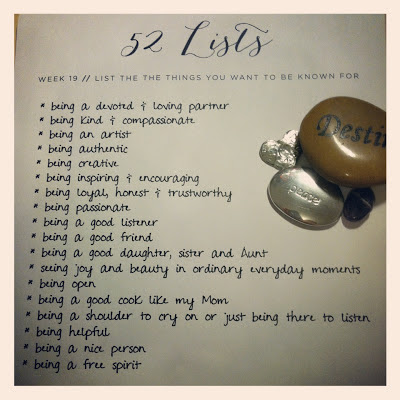 52 Lists
WEEK 19 // LIST THE THE THINGS YOU WANT TO BE KNOWN FOR
* being a devoted & loving partner
* being kind & compassionate
* being an artist
* being authentic
* being creative
* being inspiring & encouraging
* being loyal, honest & trustworthy
* being passionate
* being a good listener
* being a good friend
* being a good daughter, sister and Aunt
* seeing joy and beauty in ordinary everyday moments
* being open
* being a good cook like my Mom
* being a shoulder to cry on or just being there to listen
* being helpful
* being a nice person
* being a free spirit
Destin
peace